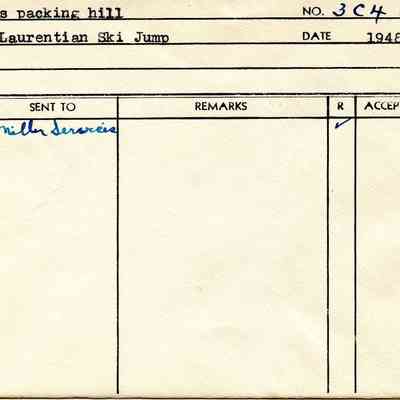 s packing hill NO. 3C4
Laurentian Ski Jump DATE 1948
SENT TO REMARKS R ACCEP
Miller Services ✓